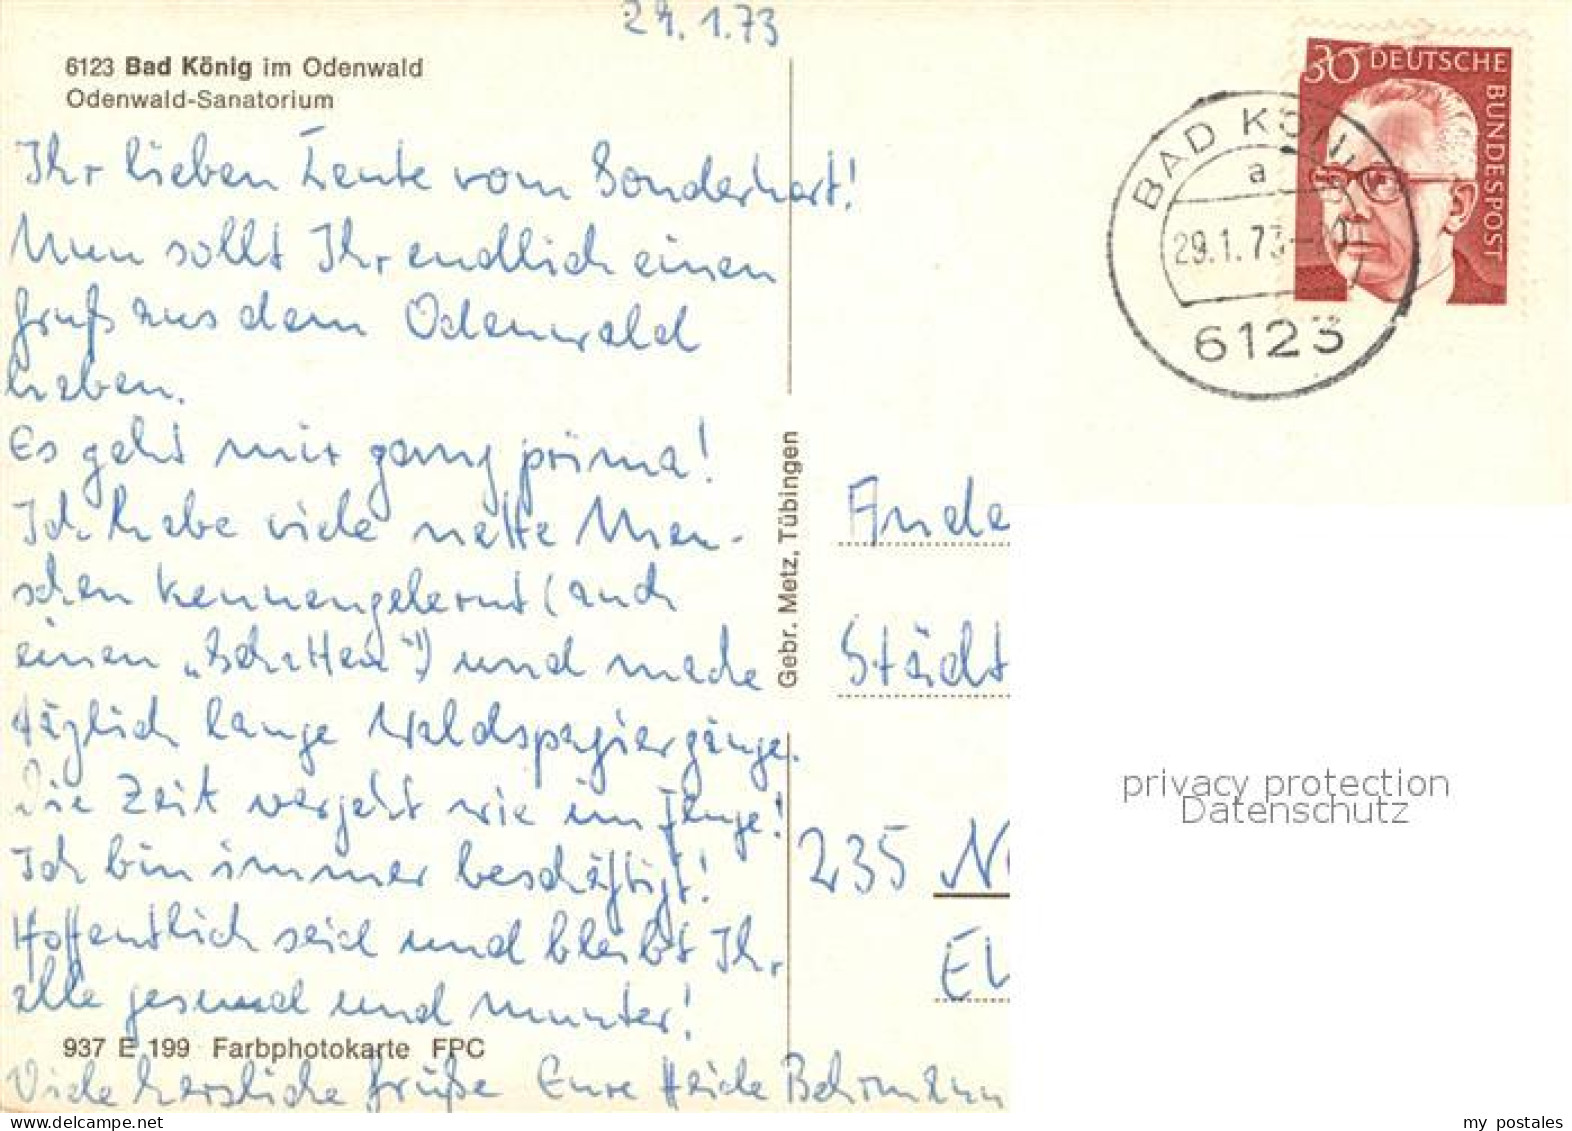 29.1.73
6123 Bad König im Odenwald
Odenwald-Sanatorium
Ihr lieben Leute vom Sonderhort!
Nun sollt Ihr endlich einen
Gruß aus dem Odenwald
haben.
Es geht mir ganz prima!
Ich habe viele nette Men-
schen kennengelernt (auch
einen „Schatten"!) und mache
täglich lange Waldspaziergänge.
Die Zeit vergeht wie im Fluge!
Ich bin immer beschäftigt!
Hoffentlich seid und bleibt Ihr
alle gesund und munter!
937 E 199 Farbphotokarte FPC
Viele herzliche Grüße Eure Heide
Gebr. Metz, Tübingen
30 DEUTSCHE
BUNDESPOST
BAD KÖNIG
a
29.1.73
6123
Ande
Städt
235 N
privacy protection
Datenschutz
my postales